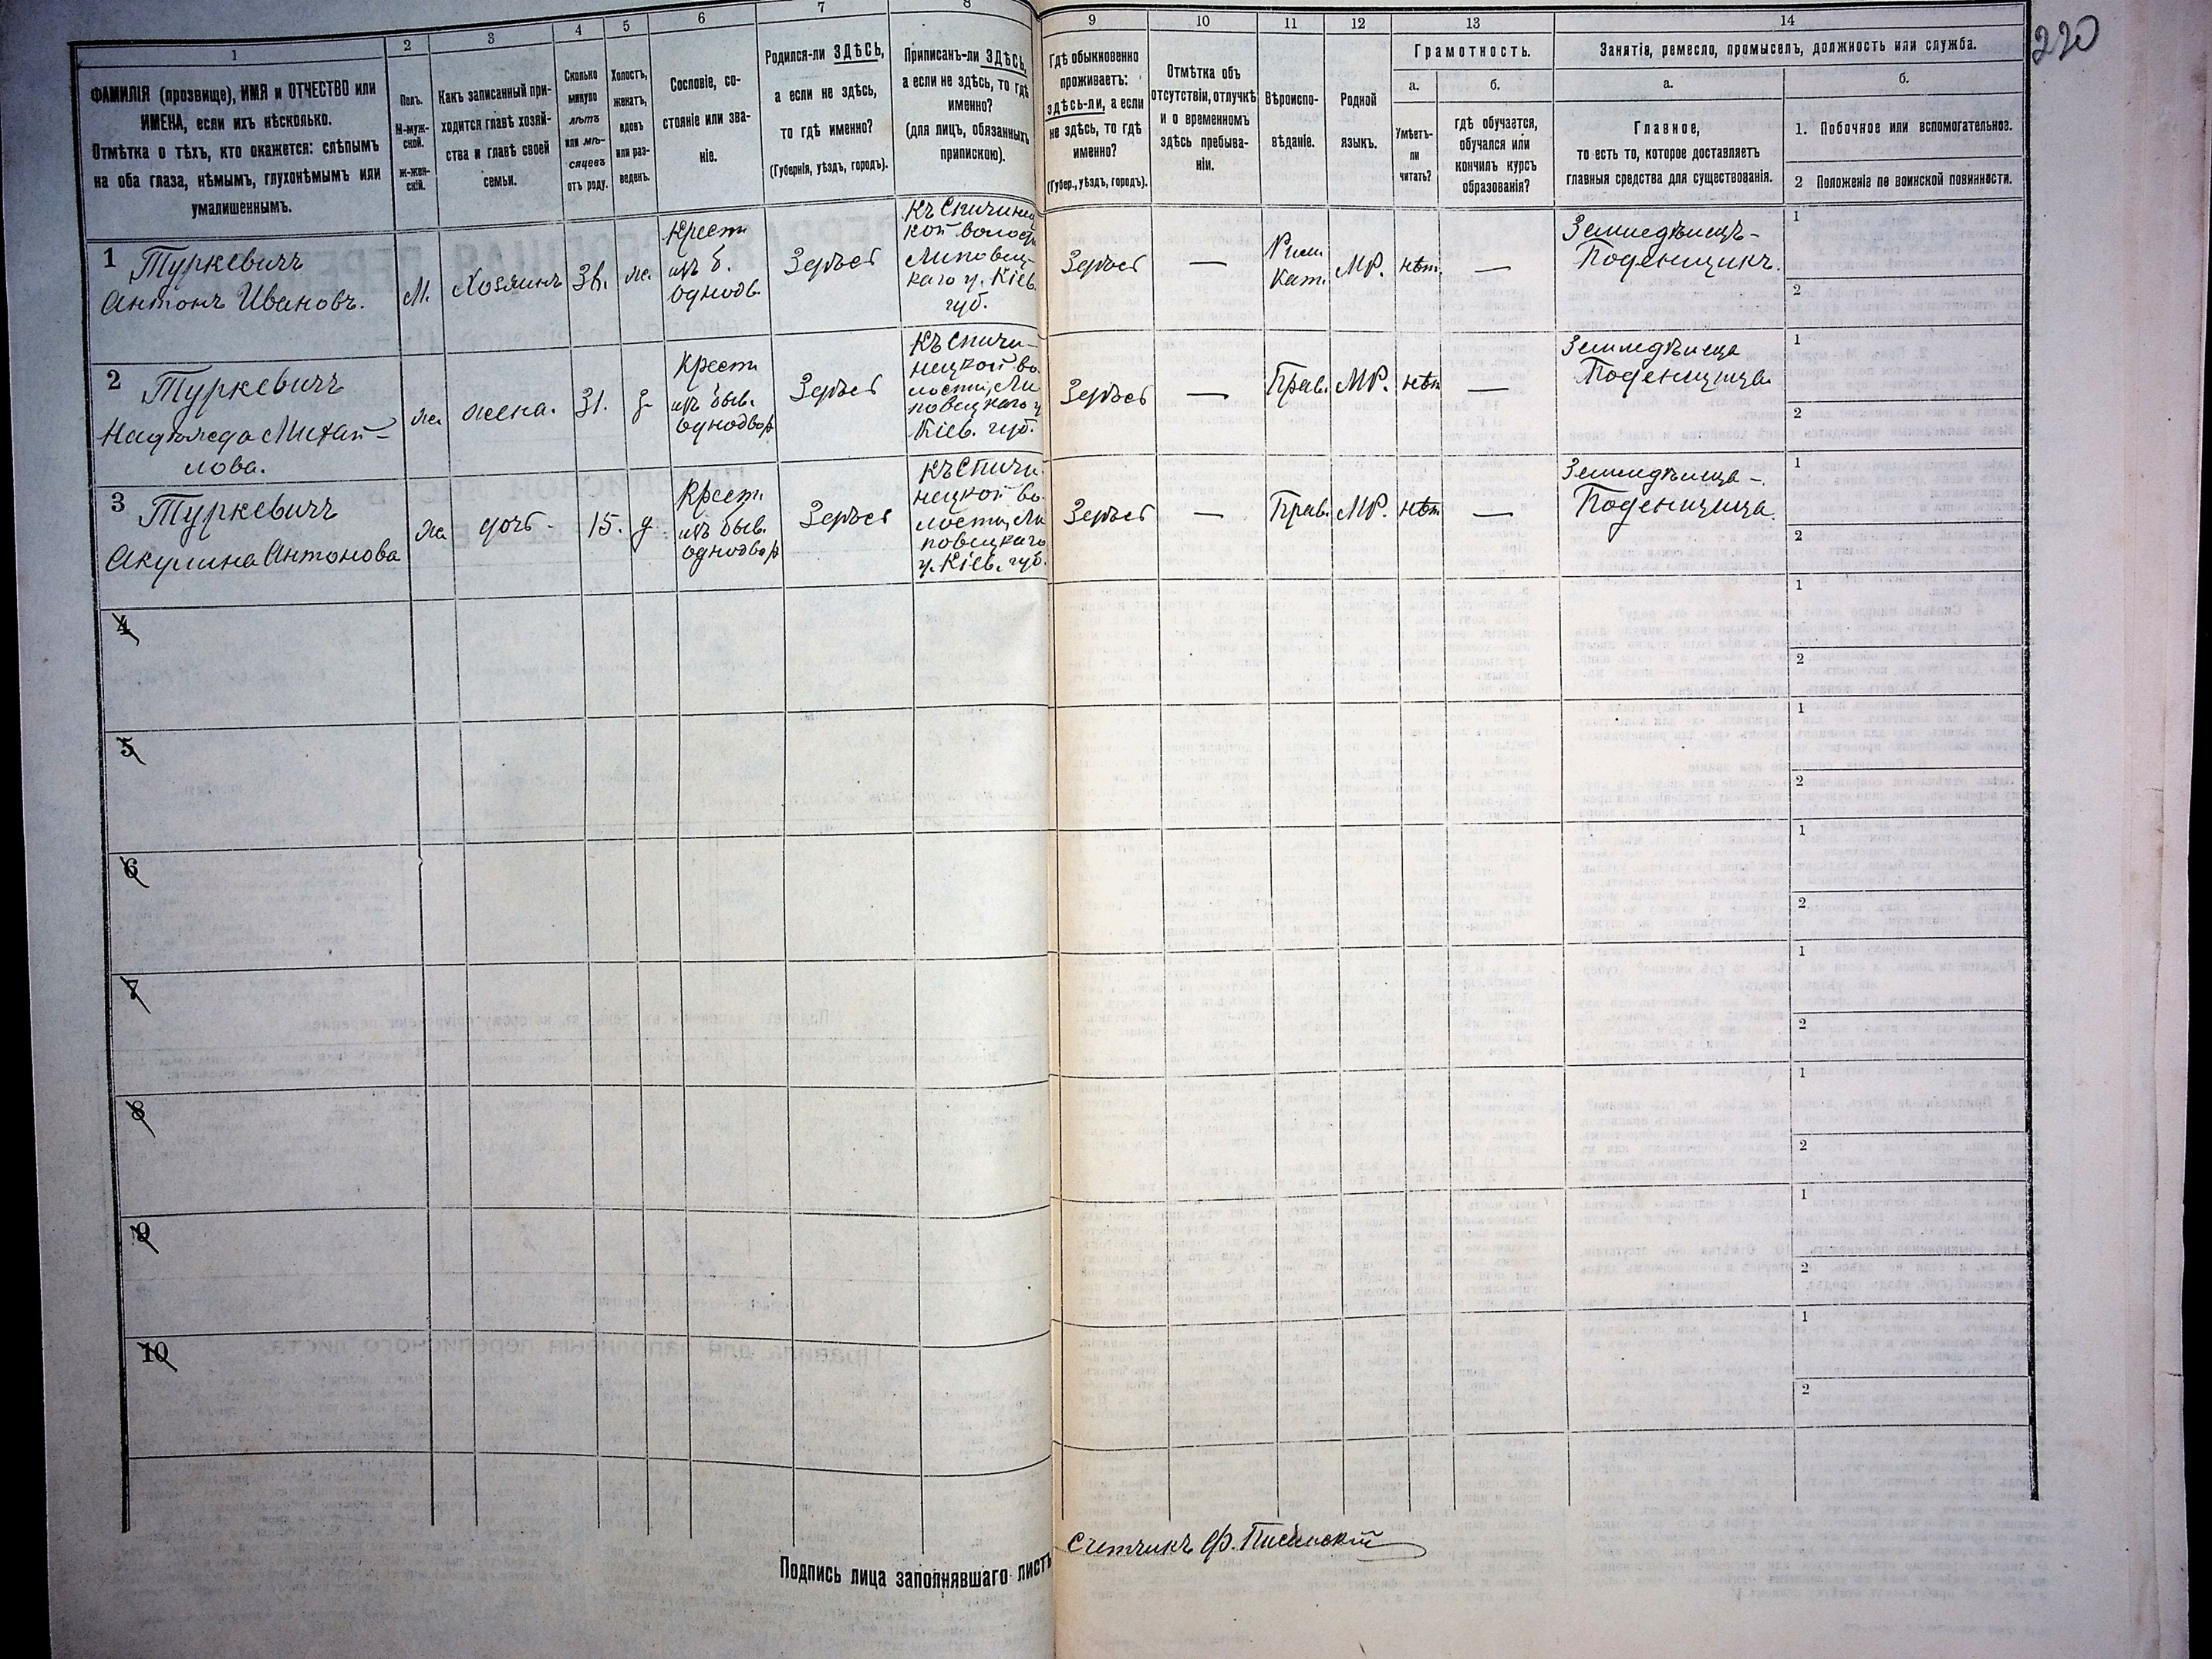 220
1
2
3
4
5
6
7
8
9
10
11
12
13
14
ФАМИЛІЯ (прозвище), ИМЯ и ОТЧЕСТВО или
ИМЕНА, если ихъ нѣсколько.
Отмѣтка о тѣхъ, кто окажется: слѣпымъ
на оба глаза, нѣмымъ, глухонѣмымъ или
умалишеннымъ.
Полъ.
М-муж-
ской.
Ж-жен-
скій.
Какъ записанный при-
ходится главѣ хозяй-
ства и главѣ своей
семьи.
Сколько
минуло
лѣтъ
или мѣ-
сяцевъ
отъ роду.
Холостъ,
женатъ,
вдовъ
или раз-
веденъ.
Сословіе, со-
стояніе или зва-
ніе.
Родился-ли ЗДѢСЬ,
а если не здѣсь,
то гдѣ именно?
(Губернія, уѣздъ, городъ).
Приписанъ-ли ЗДѢСЬ,
а если не здѣсь, то гдѣ
именно?
(для лицъ, обязанныхъ
припискою).
Гдѣ обыкновенно
проживаетъ:
здѣсь-ли, а если
не здѣсь, то гдѣ
именно?
(Губер., уѣздъ, городъ).
Отмѣтка объ
отсутствіи, отлучкѣ
и о временномъ
здѣсь пребыва-
ніи.
Вѣроиспо-
вѣданіе.
Родной
языкъ.
Грамотность.
а.
Умѣетъ-
ли
читать?
б.
гдѣ обучается,
обучался или
кончилъ курсъ
образованія?
Занятіе, ремесло, промыселъ, должность или служба.
а.
Главное,
то есть то, которое доставляетъ
главныя средства для существованія.
б.
1. Побочное или вспомогательное.
2 Положеніе по воинской повинности.
1 Туркевичъ
Антонъ Ивановъ.
М.
Хозяинъ
38.
ж.
Крест.
изъ б.
однодв.
Здѣсь
Къ Спичинец
кой волости
Липовец-
каго у. Кіев.
губ.
Здѣсь
—
Рим.
Кат.
МР.
нѣт.
—
Земледѣлецъ-
Поденщикъ.
1
2
2 Туркевичъ
Надѣжда Михай-
лова.
ж
жена.
31.
з.
Крест
изъ быв.
однодвор
Здѣсь
Къ Спичи-
нецкой во-
лости, Ли
повецкаго у
Кіев. губ.
Здѣсь
—
Прав.
МР.
нѣт
—
Земледѣлица
Поденщица.
1
2
3 Туркевичъ
Акулина Антонова
ж
дочь -
15.
д.
Крест.
изъ быв.
однодвор
Здѣсь
Къ Спичи-
нецкой во-
лости, Ли
повецкаго
у. Кіев. губ.
Здѣсь
—
Прав.
МР.
нѣт
—
Земледѣлица -
Поденщица.
1
2
4
1
2
5
1
2
6
1
2
7
1
2
8
1
2
9
1
2
10
1
2
Подпись лица заполнявшаго листъ
Счетчикъ Ф.